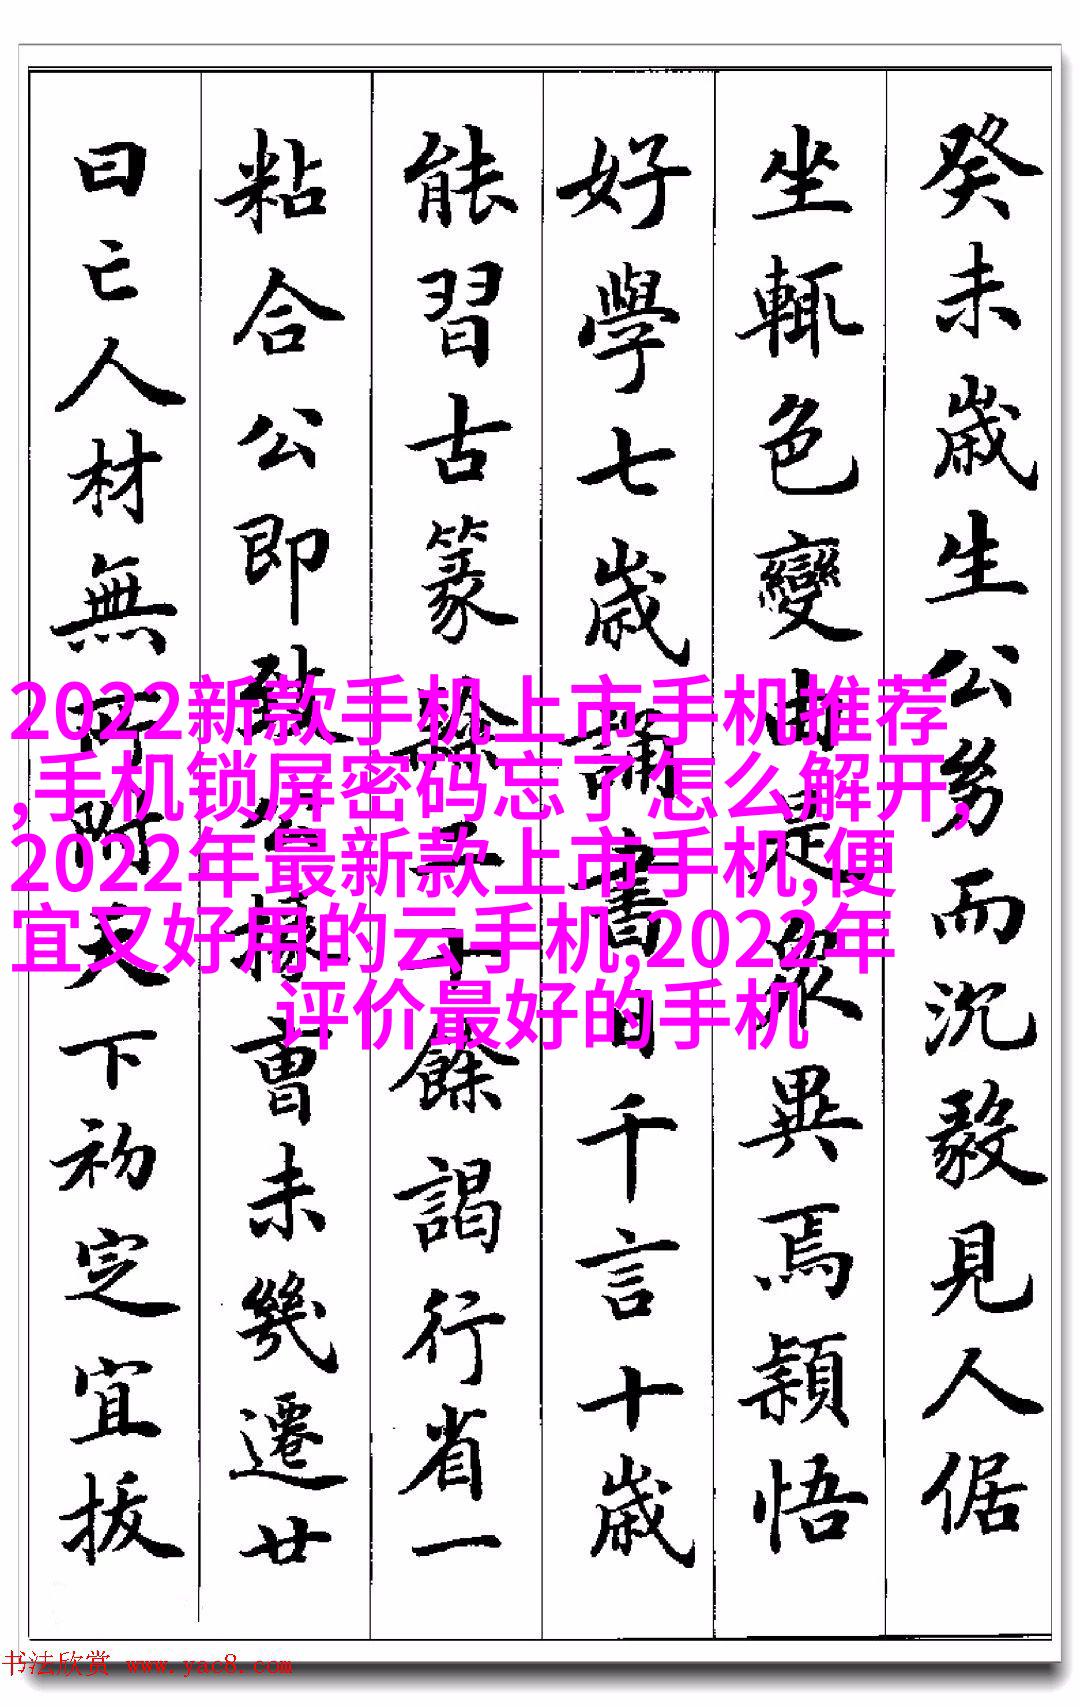 癸未歲生公幼而沉毅見人倨
坐輒色變由是眾異焉穎悟
好學七歲誦書日千言十歲
能習古篆十餘謁行省一
粘合公即曹未幾遷廿
曰亡人材無所天下初定宜拔
2022新款手机上市手机推荐
,手机锁屏密码忘了怎么解开,
2022年最新款上市手机,便
宜又好用的云手机,2022年
评价最好的手机
书法欣赏 www.yac8.com